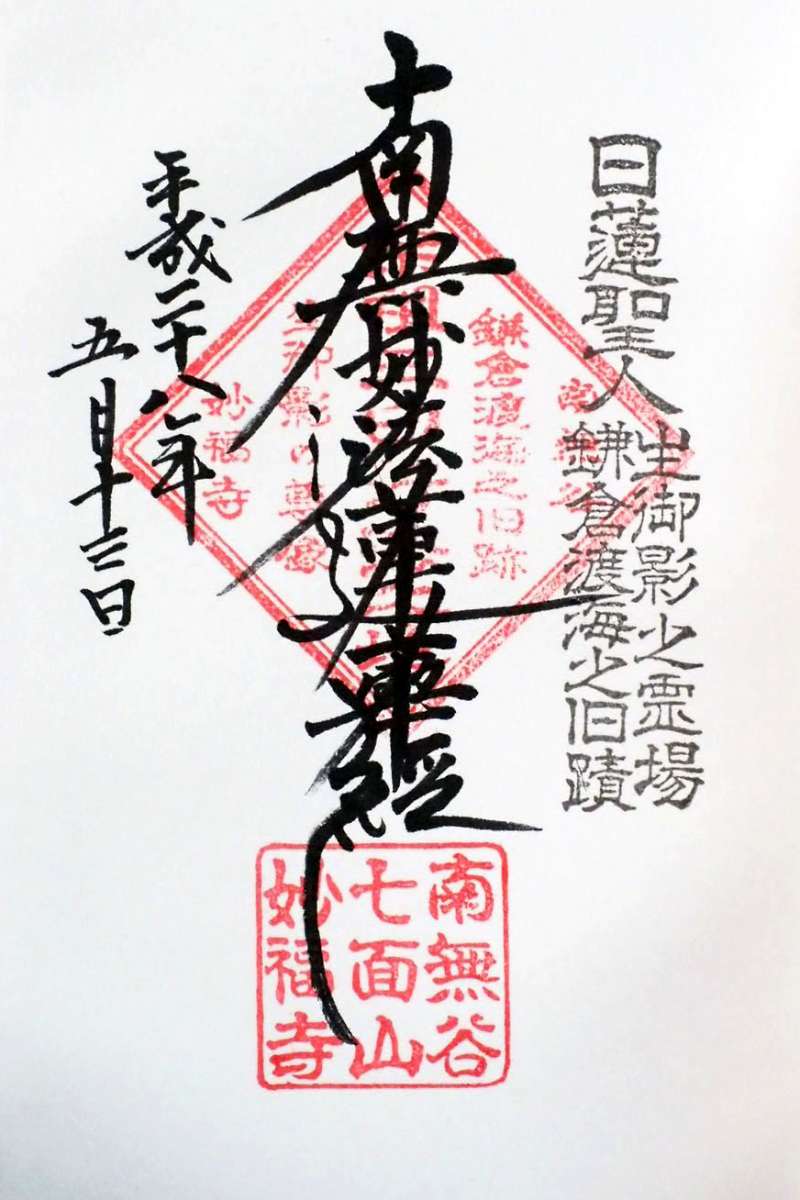 日蓮聖人
生御影之霊場
鎌倉渡海之旧蹟
南無妙法蓮華経
平成二十八年
五月十三日
鎌倉渡海之旧跡
生御影の
妙福寺
南無谷
七面山
妙福寺